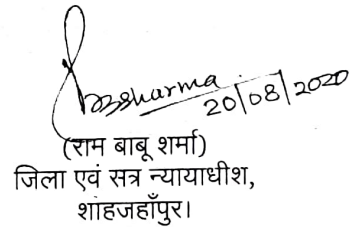 Rbsharma
20/08/2020
(राम बाबू शर्मा)
जिला एवं सत्र न्यायाधीश,
शाहजहाँपुर।